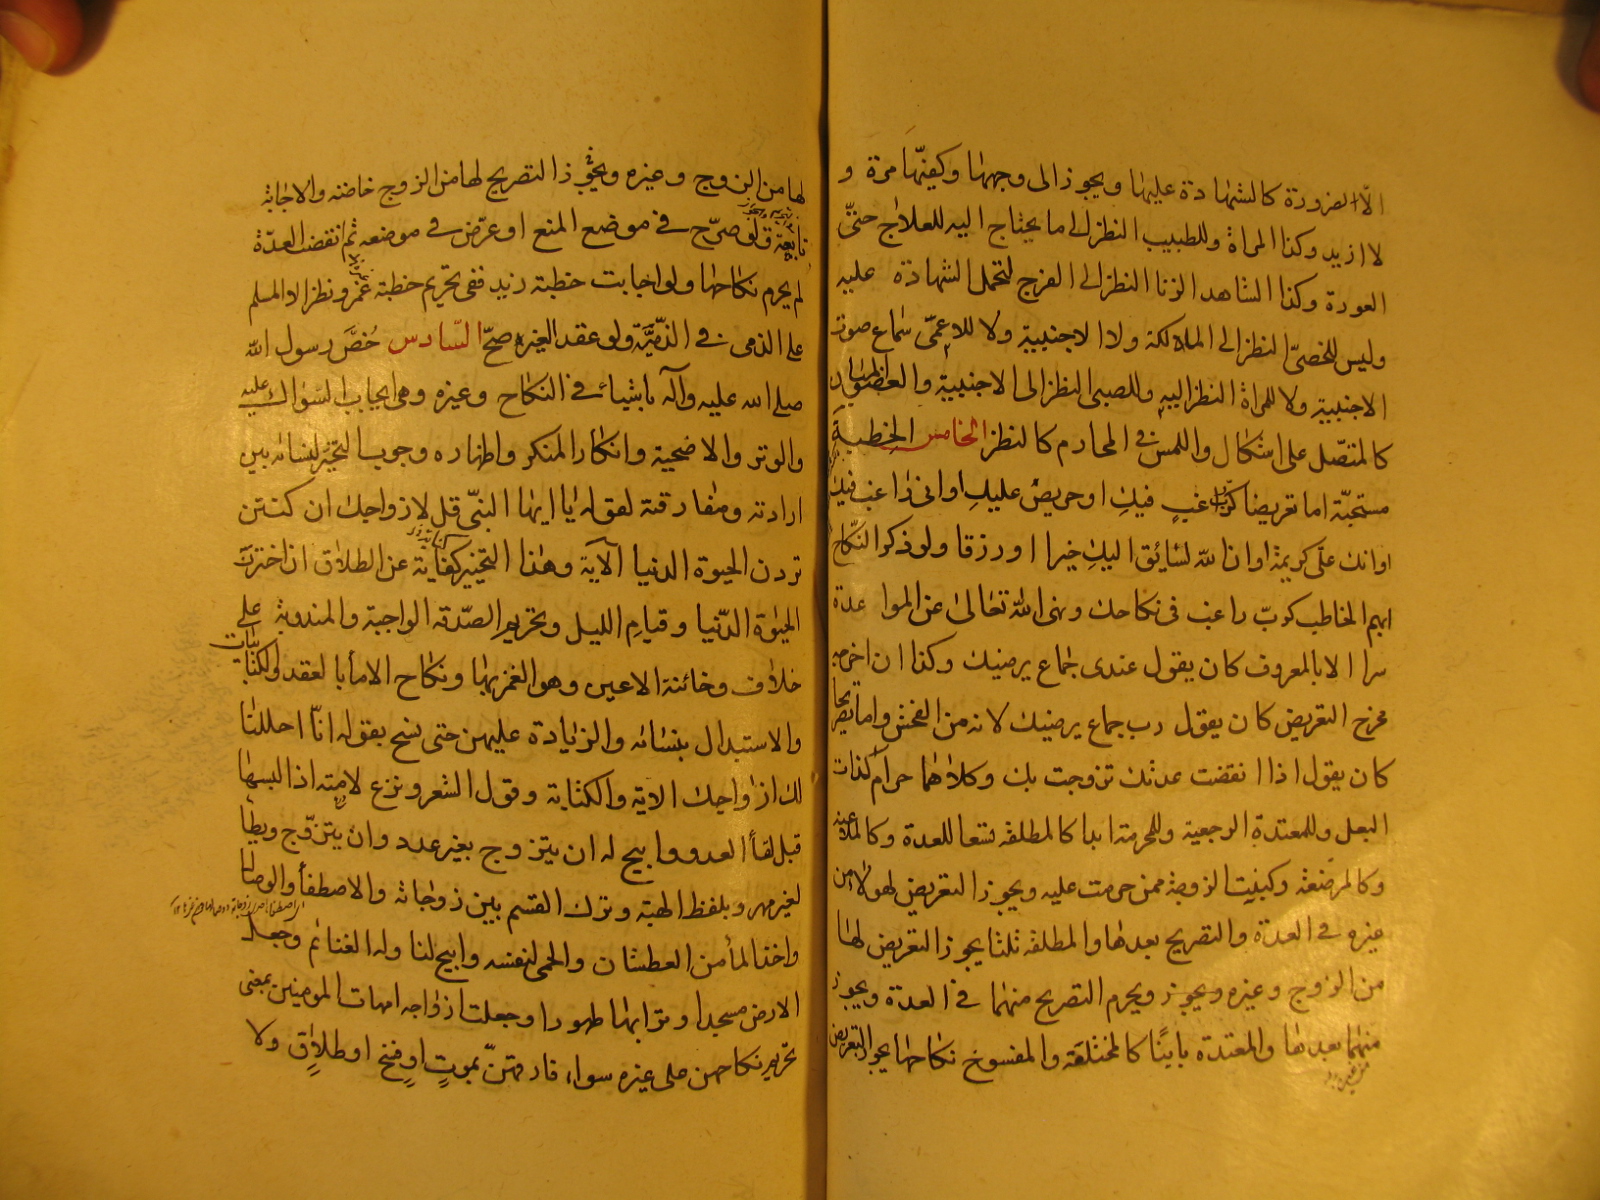 الّا الضرورة كالشهادة عليها ويجوز الى وجهها وكفيّها مرة و
لا ازيد وكذا المراة وللطبيب النظر الى ما يحتاج اليه للعلاج حتىّ
العورة وكذا الشاهد الزنا النظر الى الفرج لتحمل الشهادة عليه
وليس للخصىّ النظر الى المالكة ولا الاجنبية ولا للاعمىّ سماع صوت
الاجنبية ولا للمراة النظر اليه وللصبى النظر الى الاجنبية والعضو
كالمتصّل على اشكال واللمس فى المحارم كالنظر الخامس الخطبة
مستحبّة اما تعريضا كرب راغبٍ فيكِ او حريصٌ عليكِ او انى راغب فيك
او انك علىّ كريمة او ان الله لسائق اليكِ خيرا او رزقا ولو ذكر النكاح
ابهم الخاطب كربّ راغب فى نكاحك ونهى الله تعالى عن المواعدة
سرا الا بالمعروف كان يقول عندى جماع يرضيك وكذا ان اخرجه
مخرج التعريض كان يقول رب جماع يرضيك لانه من الفحش واما تصريحا
كان يقول اذا انقضت عدتك تزوجت بك وكلاهما حرام لذات
البعل وللمعتدة الرجعية وللمحرمة ابدا كالمطلقه تسعا للعدة وكالملاعنه
وكالمرضعة وكبنت الزوجة ممن حرمت عليه ويجوز التعريض لهولاء من
غيره فى العدة والتصريح بعدها والمطلقه ثلثا يجوز التعريض لها
من الزوج وغيره ويجوز ويحرم التصريح منهما فى العدة ويجوز
منهما بعدها والمعتدة باينًا كالمختلعة والمفسوخ نكاحها يجوز التعريض
لها من الزوج وغيره ويجوز التصريح لها من الزوج خاصة والاجابة
تابعة ولو صرّح فى موضع المنع او عرّض فى موضعه ثم انقضت العدّة
لم يحرم نكاحها ولو اجابت خطبة زيد ففى تحريم خطبة غيره نظر الا المسلم
على الذمى فى الذمّيّة ولو عقد الغير صحّ السّادس خُصَّ رسول الله
صلى الله عليه وآله باشياء فى النكاح وغيره وهى ايجاب السّواك عليه
والوتر والاضحية وانكار المنكر واظهاره ووجوب التخيّر لنسائه بين
ارادته ومفارقته لقوله يا ايها النبّى قل لازواجك ان كنتن
تردن الحيوة الدنيا الآية وهذا التخيير كناية عن الطلاق ان اخترن
الحيوة الدّنيا وقيام الليل وتحريم الصّدقه الواجبة والمندوبة على
خلاف وخائنة الاعين وهو الغمز بها ونكاح الاماء بالعقد والكتابيات
والاستبدال بنسائه والزيادة عليهن حتى نسخ بقوله انّا احللنا
لك ازواجك الاية والكتابة وقول الشعر ونزع لامته اذا لبسها
قبل لقاء العدو وابيح له ان يتزوج بغير عدد وان يتزوّج ويطأ
لغير مهر وبلفظ الهبة وترك القسم بين زوجاته والاصطفاء والوصال
واخذ الماء من العطشان والحمى لنفسه وابيح لنا وله الغنائم وجعل
الارض مسجدا وترابها طهورا وجعلت ازواجه امهات المومنين بمعنى
تحريم نكاحهن على غيره سواء فارقهنّ بموتٍ او فسخ او طلاقٍ ولا